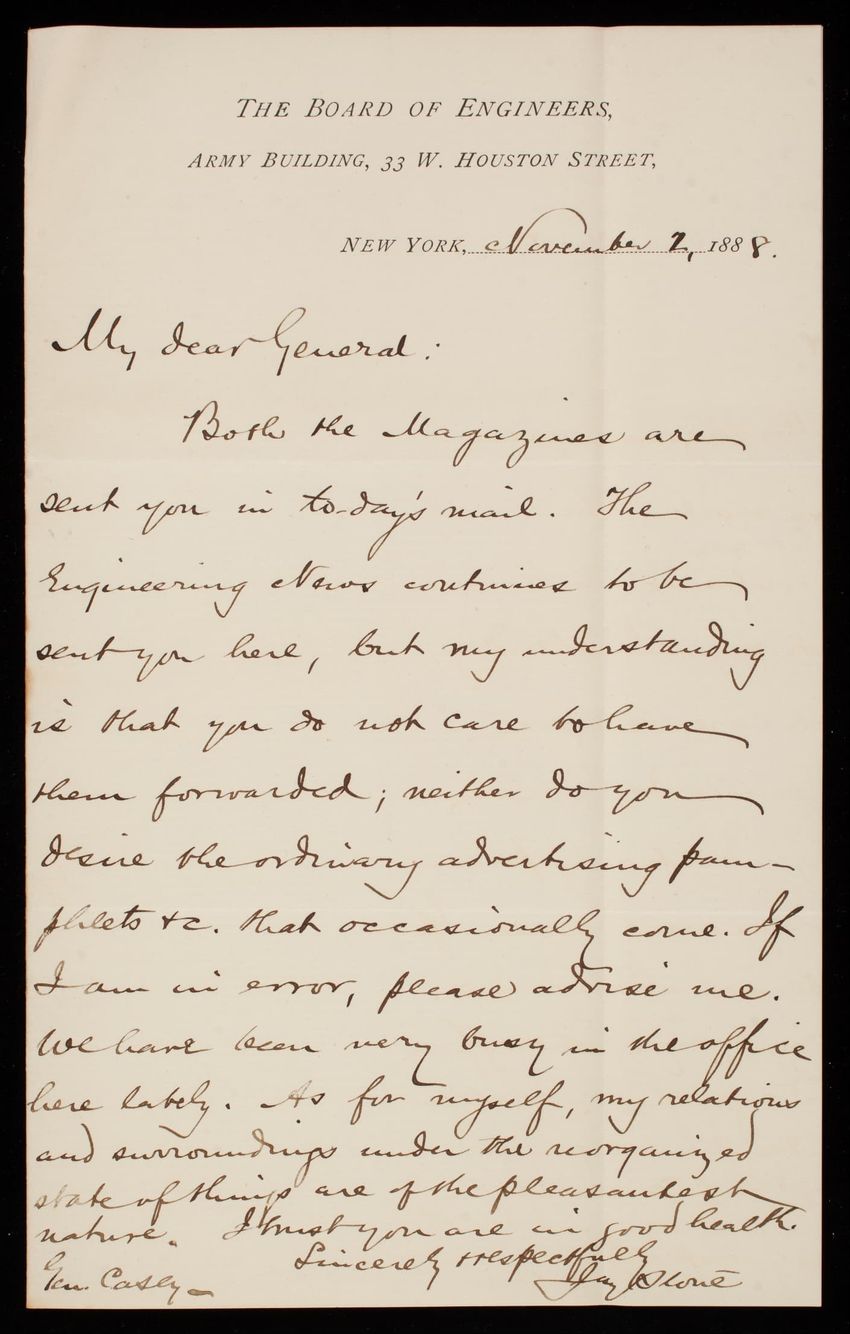 THE BOARD OF ENGINEERS,
ARMY BUILDING, 33 W. HOUSTON STREET,
NEW YORK, November 2, 1888.
My dear General:
Both the Magazines are
sent you in to-day's mail. The
Engineering News continues to be
sent you here, but my understanding
is that you do not care to have
them forwarded; neither do you
desire the ordinary advertising pam-
phlets &c. that occasionally come. If
I am in error, please advise me.
We have been very busy in the office
here lately. As for myself, my relations
and surroundings under the reorganized
state of things are of the pleasantest
nature. I trust you are in good health.
Sincerely & respectfully
Gen. Casey Jay Stone